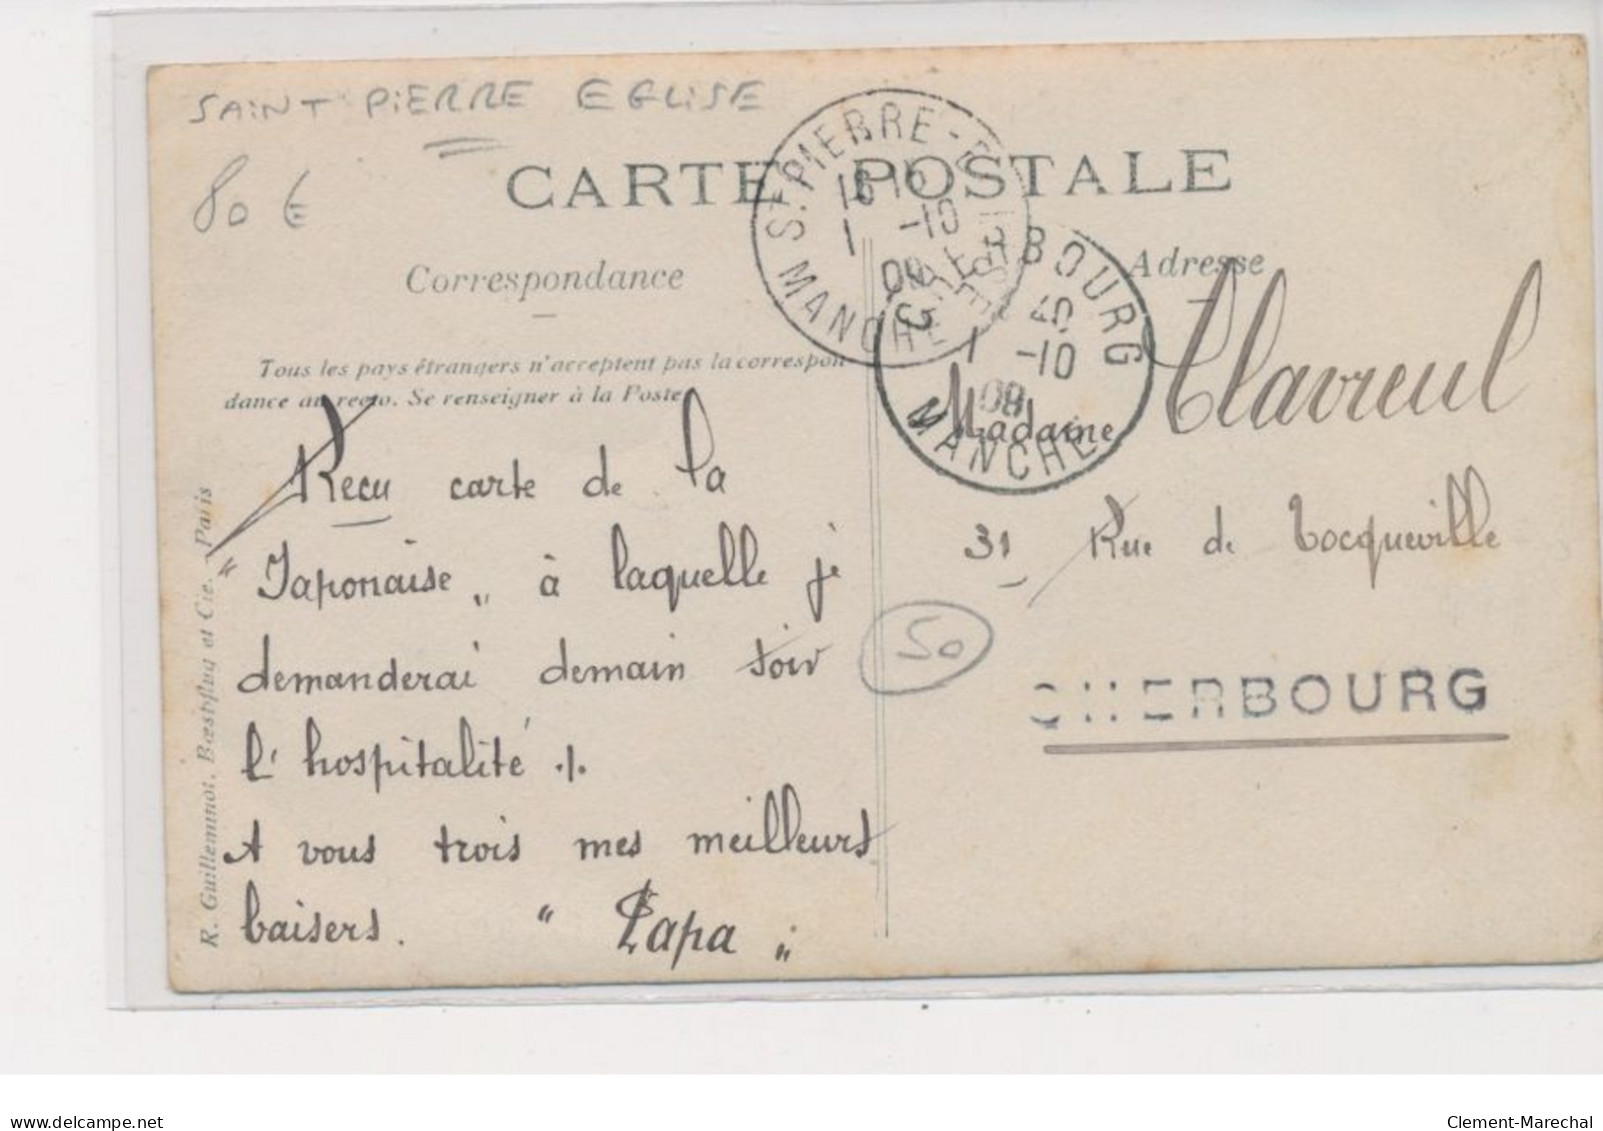 SAINT PIERRE EGLISE
80 €
CARTE POSTALE
Correspondance
Adresse
Tous les pays étrangers n'acceptent pas la correspon-
dance au recto. Se renseigner à la Poste
R. Guilleminot, Bœspflug et Cie. - Paris
ST PIERRE-EGLISE
1 -10
09
MANCHE
CHERBOURG
40
1 -10
09
MANCHE
Reçu carte de la
"Japonaise" à laquelle je
demanderai demain soir
l'hospitalité ./.
A vous trois mes meilleurs
baisers. "Papa"
Madame Clavreul
31 Rue de Tocqueville
50
CHERBOURG
delcampe.net
Clement-Marechal